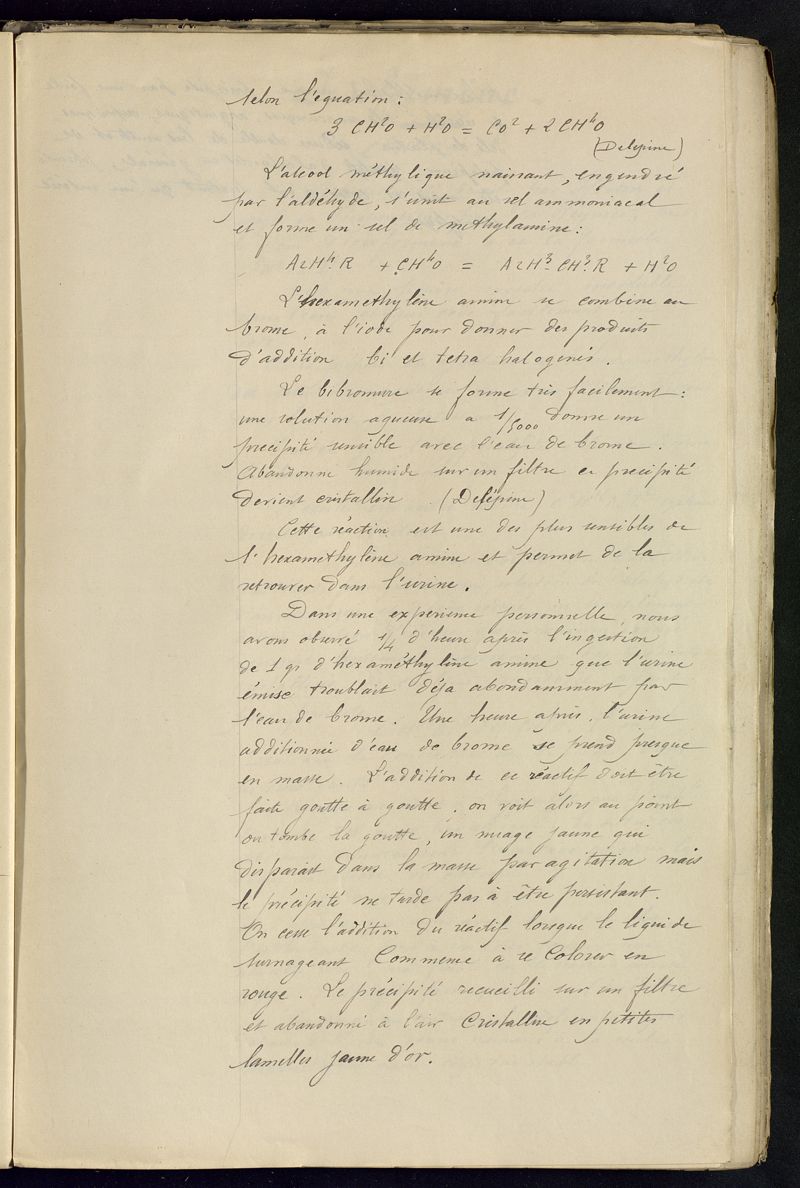 selon l'equation :
3 CH²O + H²O = CO² + 2CH⁴O
(Delepine)
L'alcool méthylique naissant, engendré
par l'aldéhyde, s'unit au sel ammoniacal
et forme un sel de methylamine :
AzH⁴.R + CH⁴O = AzH³.CH³.R + H²O
L'hexamethylène amine se combine au
brome, à l'iode pour donner des produits
d'addition bi et tetra halogenés.
Le bibromure se forme très facilement :
une solution aqueuse a 1/5000 donne un
precipité sensible avec l'eau de brome.
Abandonne humide sur un filtre ce precipité
devient cristallin (Delépine)
Cette réaction est une des plus sensibles de
l'hexamethylène amine et permet de la
retrouver dans l'urine.
Dans une experience personnelle, nous
avons observé 1/4 d'heure après l'ingestion
de 1 gr d'hexaméthylène amine que l'urine
émise troublait déja abondamment par
l'eau de brome. Une heure après, l'urine
additionnée d'eau de brome se prend presque
en masse. L'addition de ce réactif doit être
faite goutte à goutte, on voit alors au point
ou tombe la goutte, un nuage jaune qui
disparait dans la masse par agitation mais
le précipité ne tarde pas à être persistant.
On cesse l'addition du réactif lorsque le liquide
surnageant commence à se colorer en
rouge. Le précipité recueilli sur un filtre
et abandonné à l'air cristallise en petites
lamelles jaune d'or.